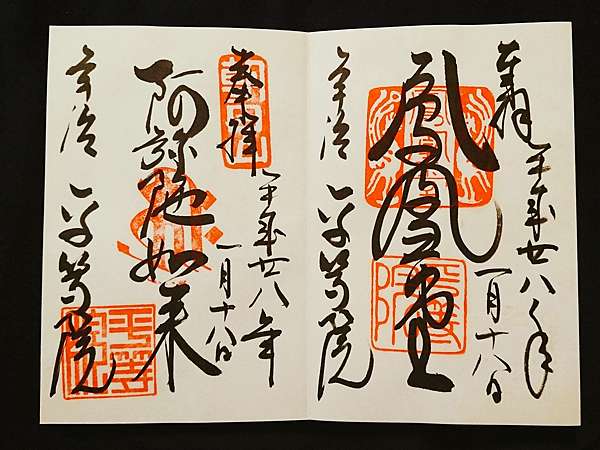 奉拝
平成廿八年
一月十八日
鳳凰堂
宇治
平等院
奉拝
平成廿八年
一月十八日
阿弥陀如来
宇治
平等院